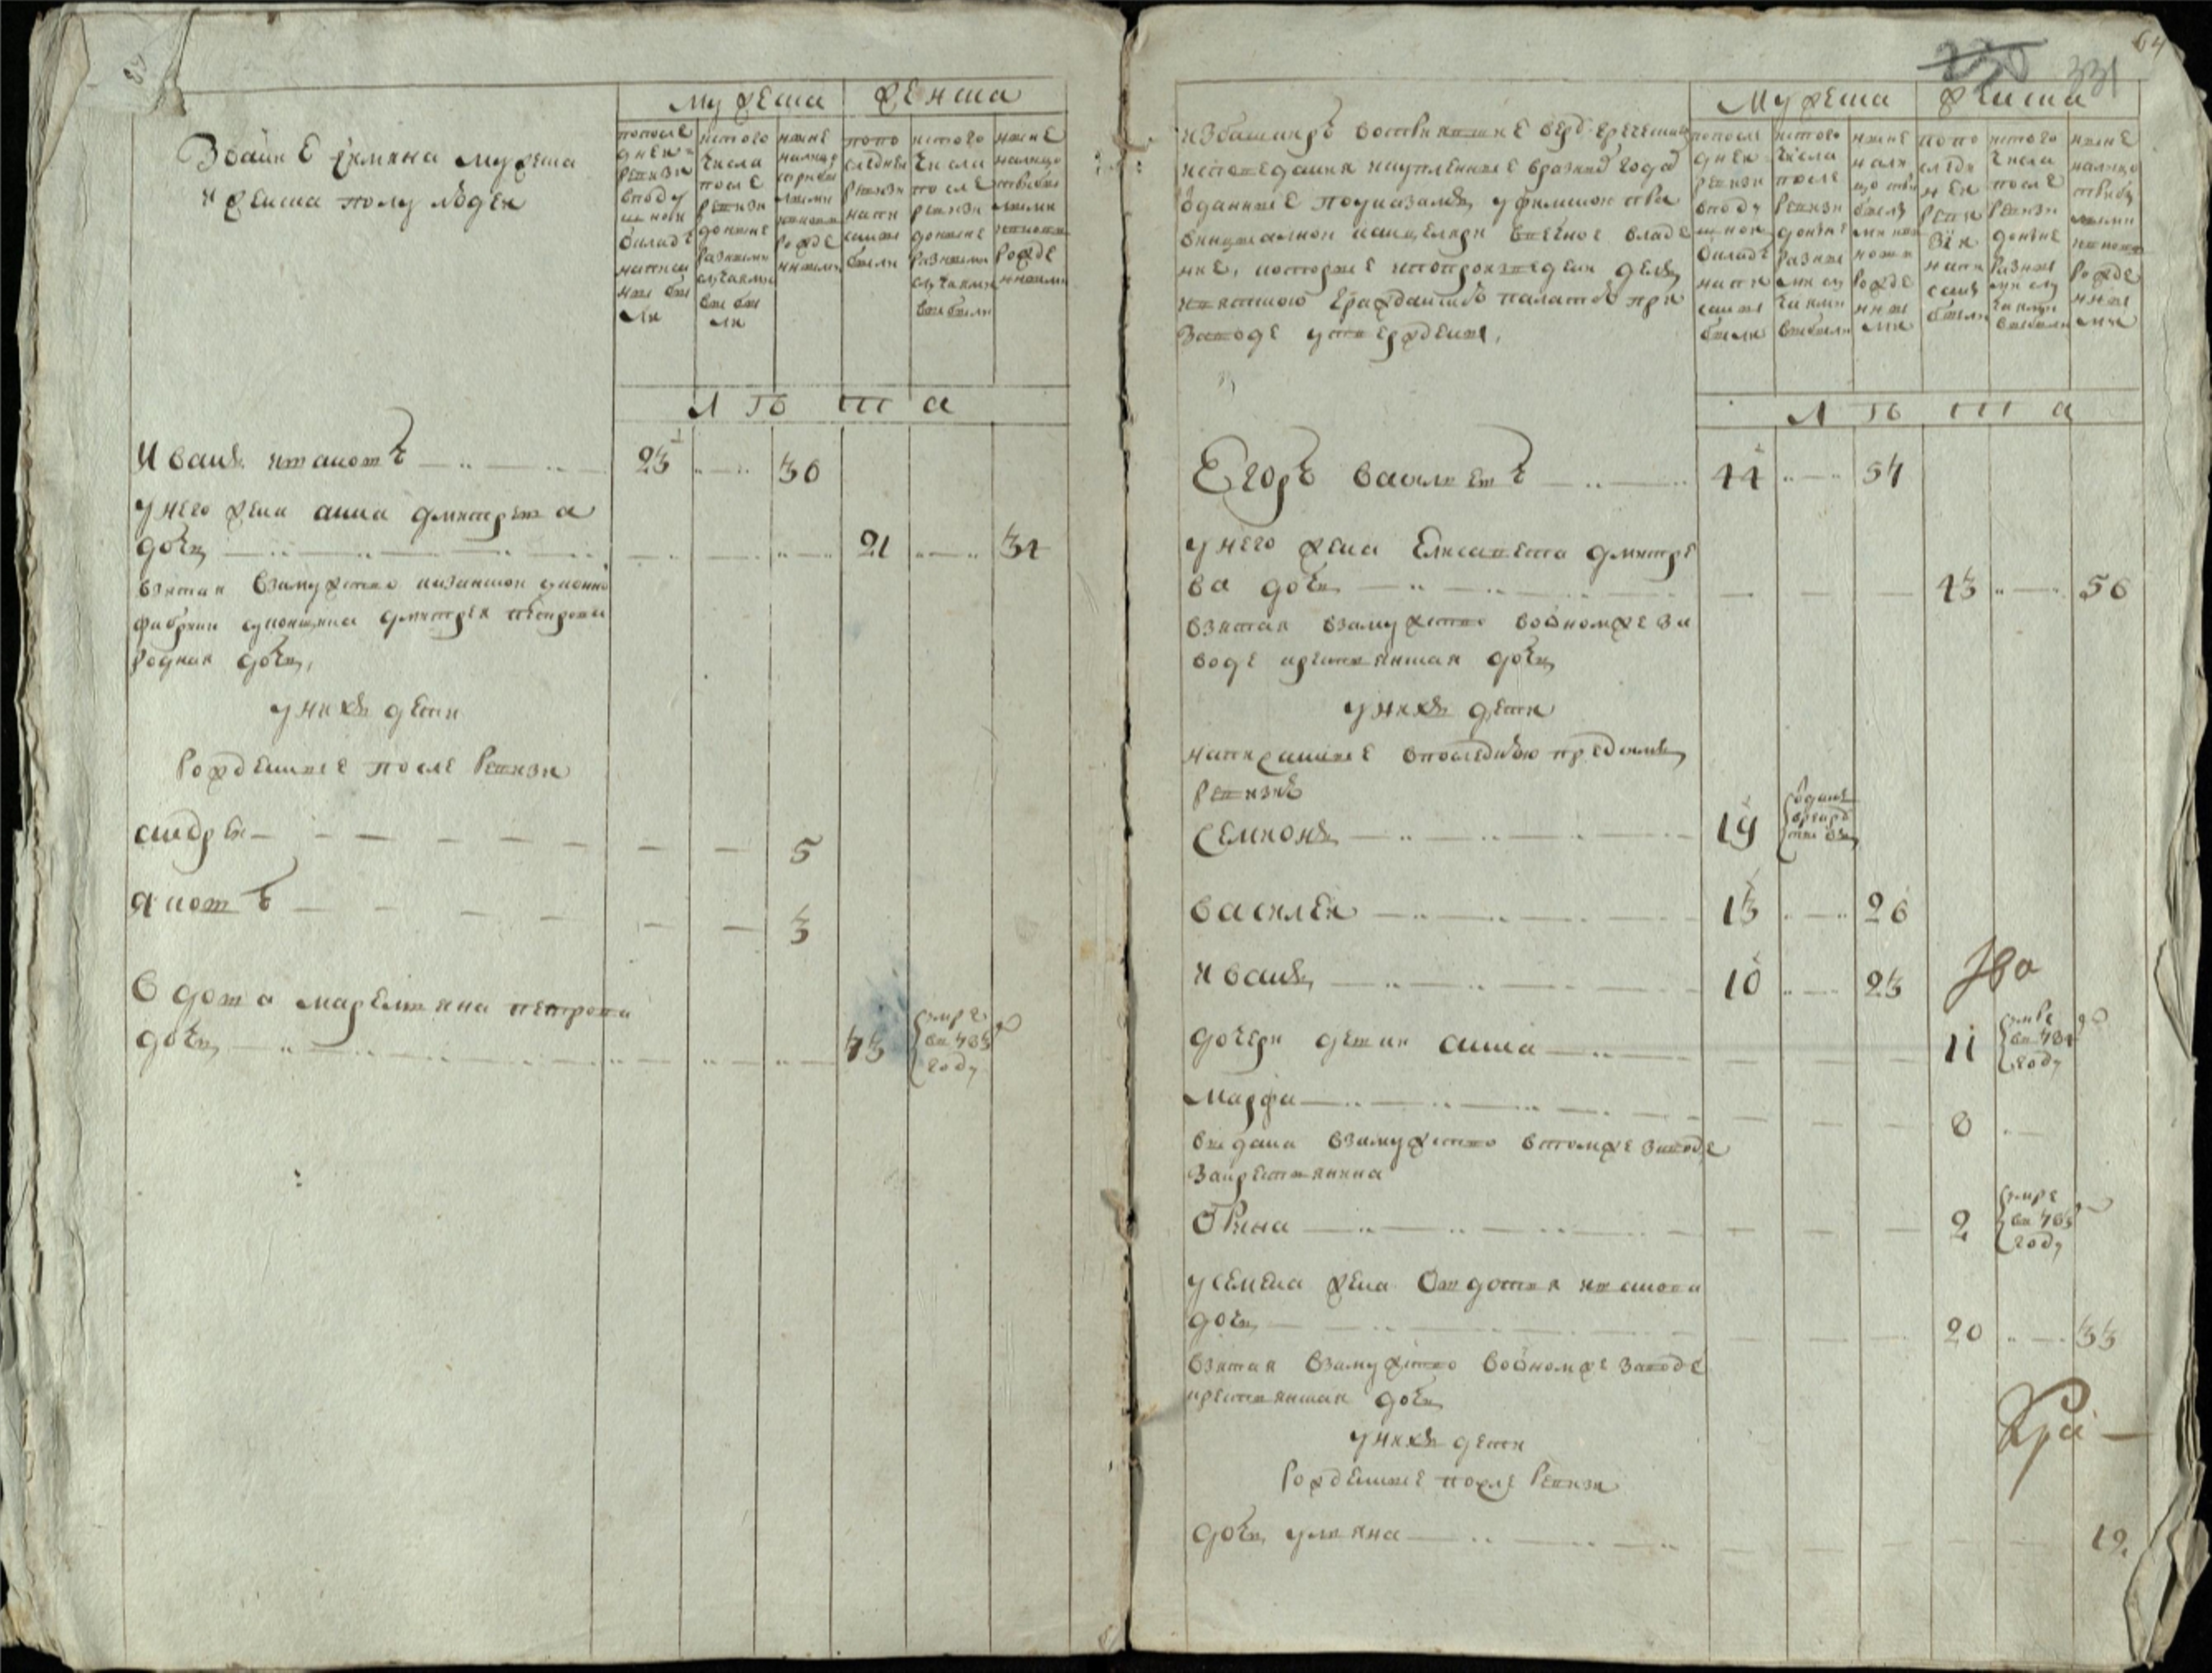 Звание имяна мужеска
и женска полу людеи
мужеска женска
попосле
днеи
ревизи
вподу
шнои
окладъ
написа
ны бы
ли
истого
числа
после
ревизи
доныне
разными
случаями
вы бы
ли
ныне
налицо
рожде
нными
попо
следнеи
ревизи
напи
саны
были
истого
числа
после
ревизи
доныне
разными
случаями
выбыли
ныне
налицо
рожде
нными
лѣта
Иванъ ивановъ 23 30
унего жена анна дмитрева
дочь 21 34
взятая взамужство казанскои суконнои
фабрики суконщика дмитрея петрова
родная дочь,
унихъ дети
рожденные после ревизи
андреи 5
яковъ 3
вдова маремьяна петрова
дочь 73 умре
в 783
году
64
230 331
избашкиръ воспѣвшие вгре ческаго
исповедания купленные вразныхъ годахъ
оданные поуказамъ уфимскои про
винциалнои канцеляри вечное владе
ние, которые попроизведени делъ
гражданскою палатою при
заводе утверждены,
мужеска женска
попосле
днеи
ревизи
вподу
шнои
окладъ
напи
саны
были
истого
числа
после
ревизи
доныне
разны
ми слу
чаями
выбыли
ныне
нали
цо
рожде
нны
ми
попо
следн
неи
реви
зiи
напи
саны
были
истого
числа
после
ревизи
доныне
разны
ми слу
чаями
выбыли
ныне
налицо
рожде
нны
ми
лѣта
Егоръ васильевъ 44 57
унего жена Елисавета дмитре
ва дочь 43 56
взятая взамужство водномже за
воде крестьянская дочь
унихъ дети
написанные впоследнюю предсимъ
ревизiю
Семионъ 19 отданъ
врекру
ты
василеи 13 26
иванъ 10 23
дочери девки анна 11 умре
в 784
году
марфа 8
выдана взамужство втомже заводе
закрестьянина
Орина 2 умре
в 783
году
усемена жена Овдотья иванова
дочь 20 33
взятая взамужство водномже заводе
крестьянская дочь
унихъ дети
рожденные после ревизи
дочь ульяна 12